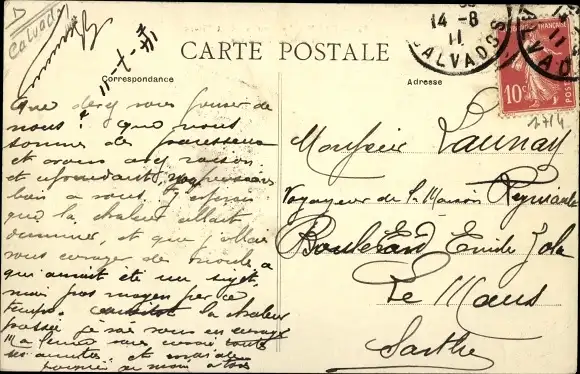 D
Calvados
14-7-11
CARTE POSTALE
Correspondance
Adresse
14-8
11
CALVADOS
10c
POSTES
1714
Que devez vous penser de
nous? Que nous
sommes des paresseux
et avons
et cependant,
bien à vous. J'espérais
que la chaleur allait
diminuer, et que j'allais
vous envoyer des
qui aurait été un sujet,
mais pas moyen par ce
temps. la chaleur
passée je vais vous en envoyer
Ma femme vous envoie toutes
ses amitiés et
poignée de main à tous
Monsieur Launay
Voyageur de la Maison
Boulevard Emile Zola
Le Mans
Sarthe